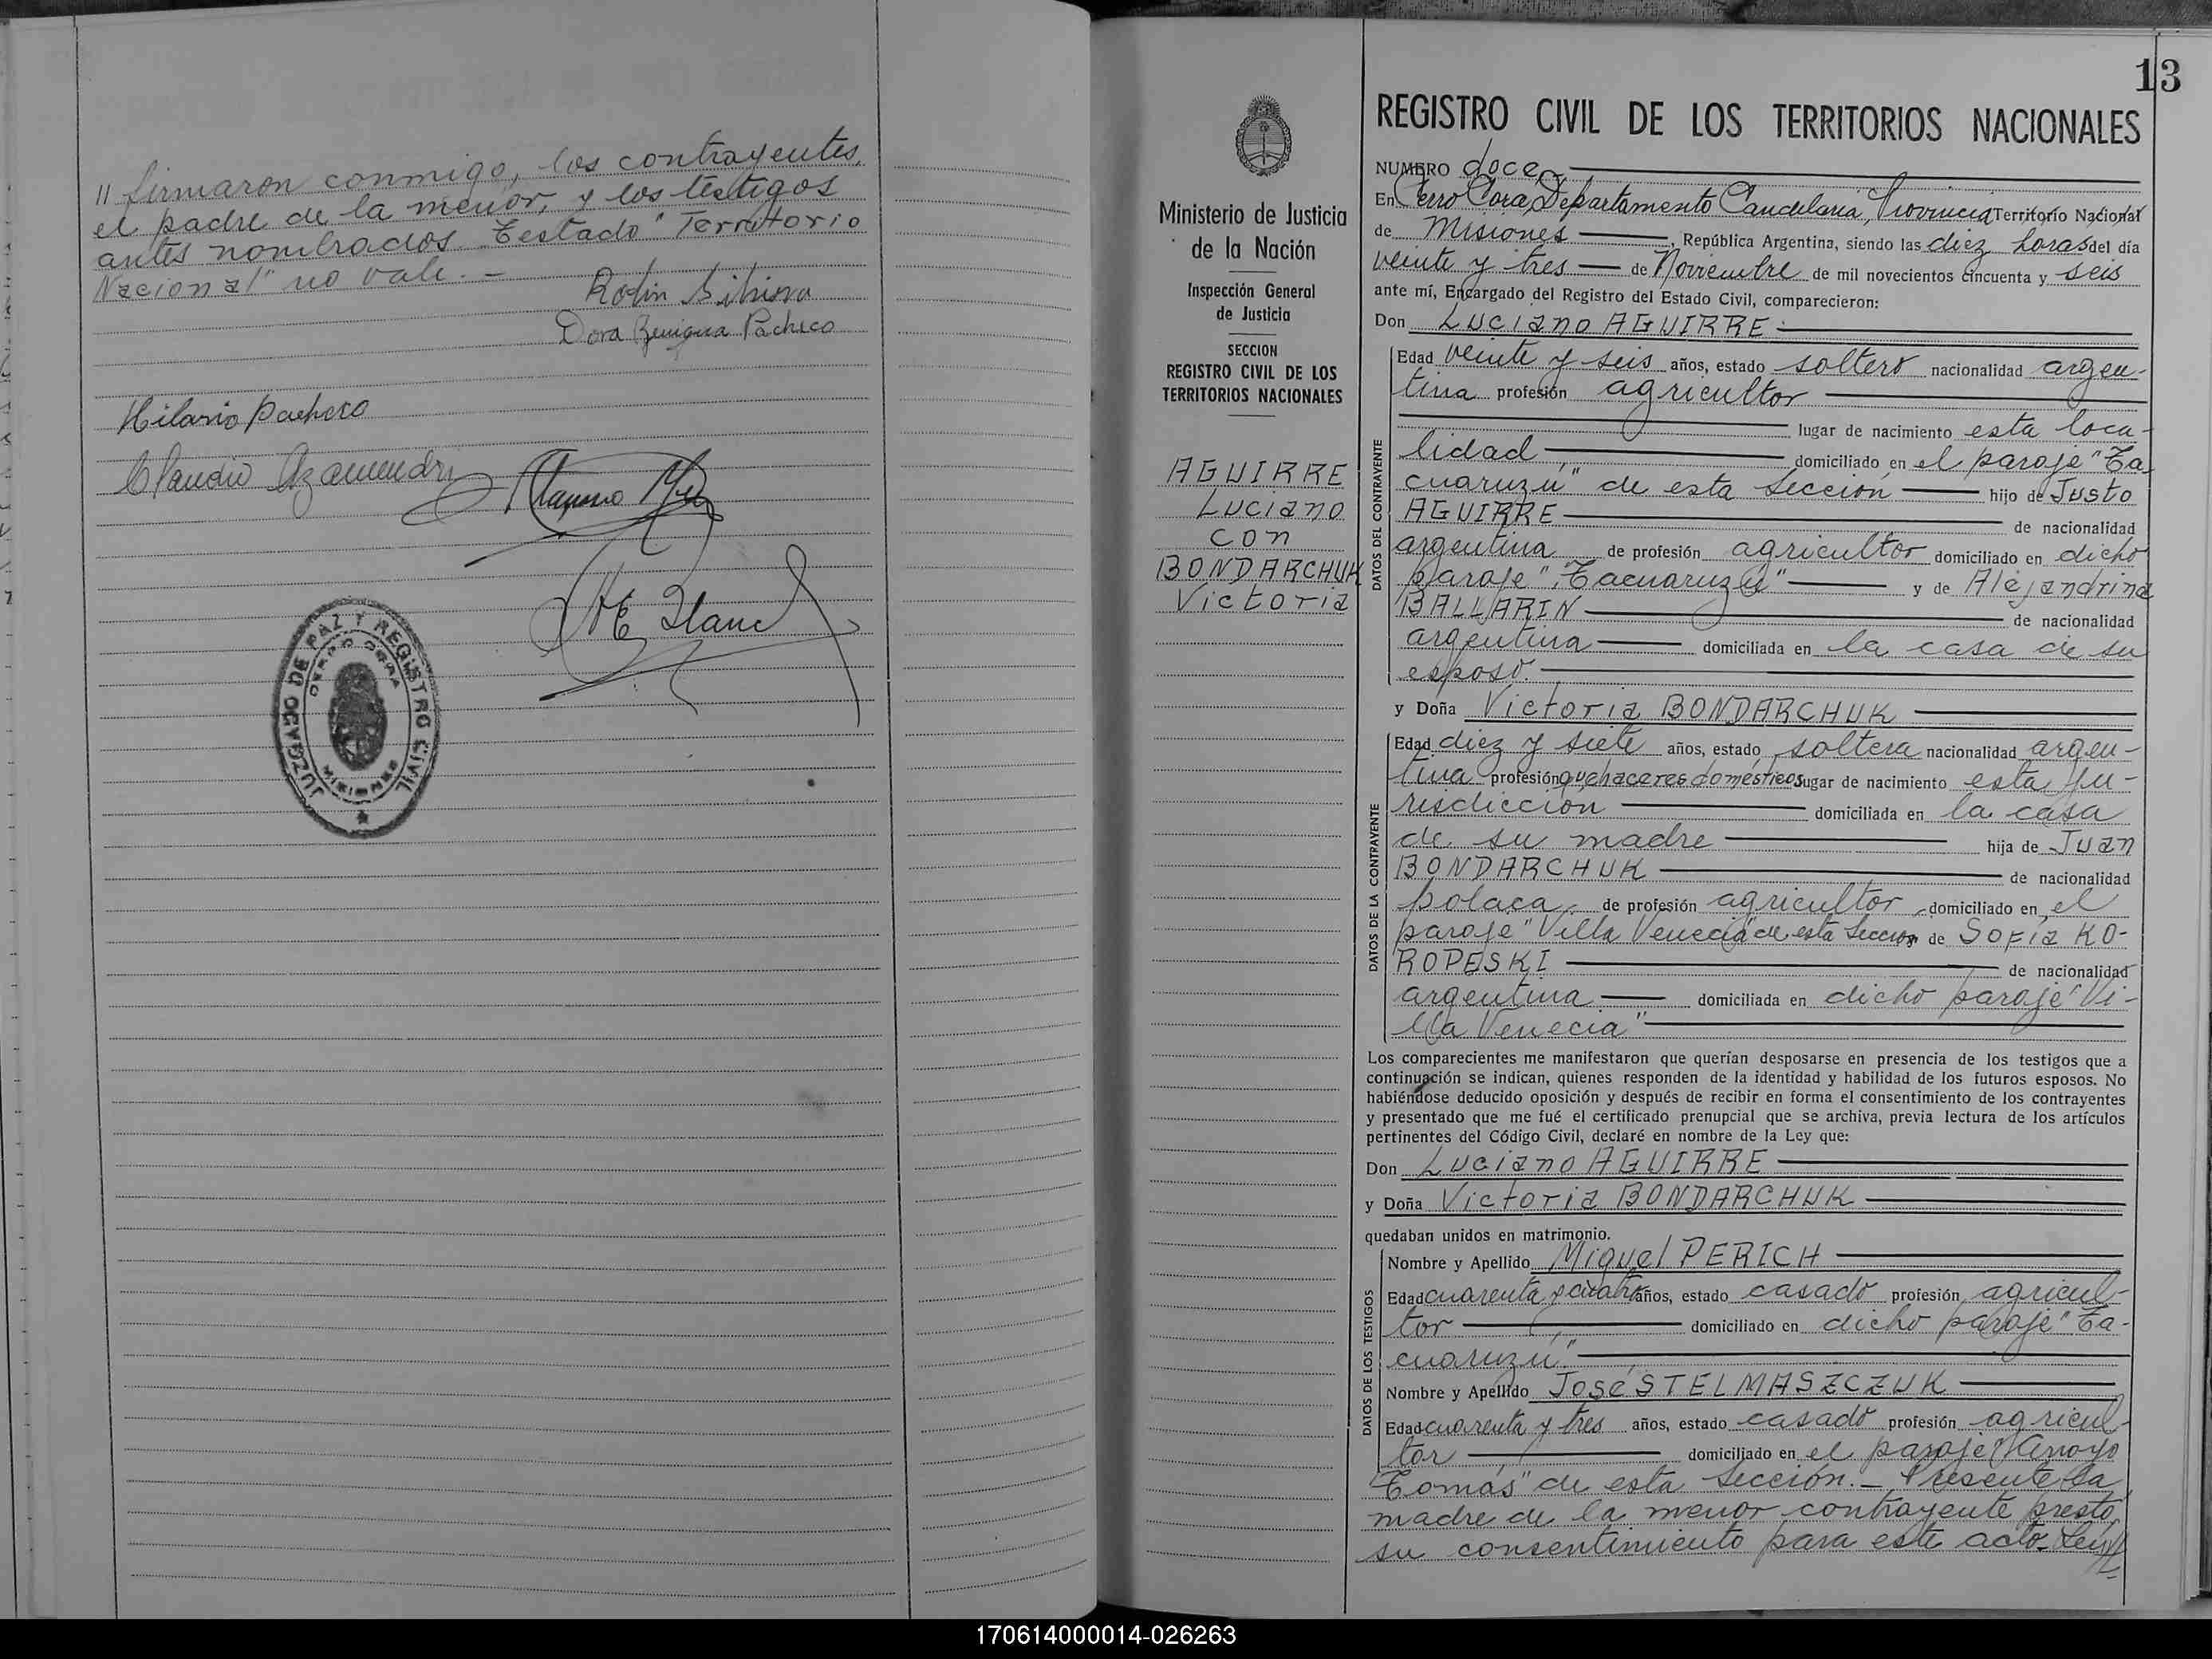 // firmaron conmigo, los contrayentes,
el padre de la menor, y los testigos
antes nombrados. Testado "Territorio
Nacional" no vale.-
Dora Benigna Pacheco
Hilario Pacheco
Claudio Azamendi
JUZGADO DE PAZ Y REGISTRO CIVIL
CERRO CORA
MISIONES
13
Ministerio de Justicia
de la Nación
Inspección General
de Justicia
SECCION
REGISTRO CIVIL DE LOS
TERRITORIOS NACIONALES
AGUIRRE
Luciano
con
BONDARCHUK
Victoria
REGISTRO CIVIL DE LOS TERRITORIOS NACIONALES
NUMERO doce
En Cerro Corá, Departamento Candelaria, Provincia Territorio Nacional
de Misiones, República Argentina, siendo las diez horas del día
veinte y tres de Noviembre de mil novecientos cincuenta y seis
ante mí, Encargado del Registro del Estado Civil, comparecieron:
Don Luciano AGUIRRE
DATOS DEL CONTRAYENTE
Edad veinte y seis años, estado soltero nacionalidad argen-
tina profesión agricultor
lugar de nacimiento esta loca-
lidad domiciliado en el paraje "Ta-
cuaruzú" de esta sección hijo de Justo
AGUIRRE de nacionalidad
argentina de profesión agricultor domiciliado en dicho
paraje "Tacuaruzú" y de Alejandrina
BALLARIN de nacionalidad
argentina domiciliada en la casa de su
esposo.
y Doña Victoria BONDARCHUK
DATOS DE LA CONTRAYENTE
Edad diez y siete años, estado soltera nacionalidad argen-
tina profesión quehaceres domésticos lugar de nacimiento esta ju-
risdicción domiciliada en la casa
de su madre hija de Juan
BONDARCHUK de nacionalidad
polaca de profesión agricultor domiciliado en el
paraje "Villa Venecia" de esta sección de Sofia KO-
ROPESKI de nacionalidad
argentina domiciliada en dicho paraje "Vi-
lla Venecia"
Los comparecientes me manifestaron que querían desposarse en presencia de los testigos que a
continuación se indican, quienes responden de la identidad y habilidad de los futuros esposos. No
habiéndose deducido oposición y después de recibir en forma el consentimiento de los contrayentes
y presentado que me fué el certificado prenupcial que se archiva, previa lectura de los artículos
pertinentes del Código Civil, declaré en nombre de la Ley que:
Don Luciano AGUIRRE
y Doña Victoria BONDARCHUK
quedaban unidos en matrimonio.
DATOS DE LOS TESTIGOS
Nombre y Apellido Miguel PERICH
Edad cuarenta y cuatro años, estado casado profesión agricul-
tor domiciliado en dicho paraje "Ta-
cuaruzú".
Nombre y Apellido José STELMASZCZUK
Edad cuarenta y tres años, estado casado profesión agricul-
tor domiciliado en el paraje "Arroyo
Tomás" de esta sección.- Presente la
madre de la menor contrayente prestó
su consentimiento para este acto. Leyó//
170614000014-026263